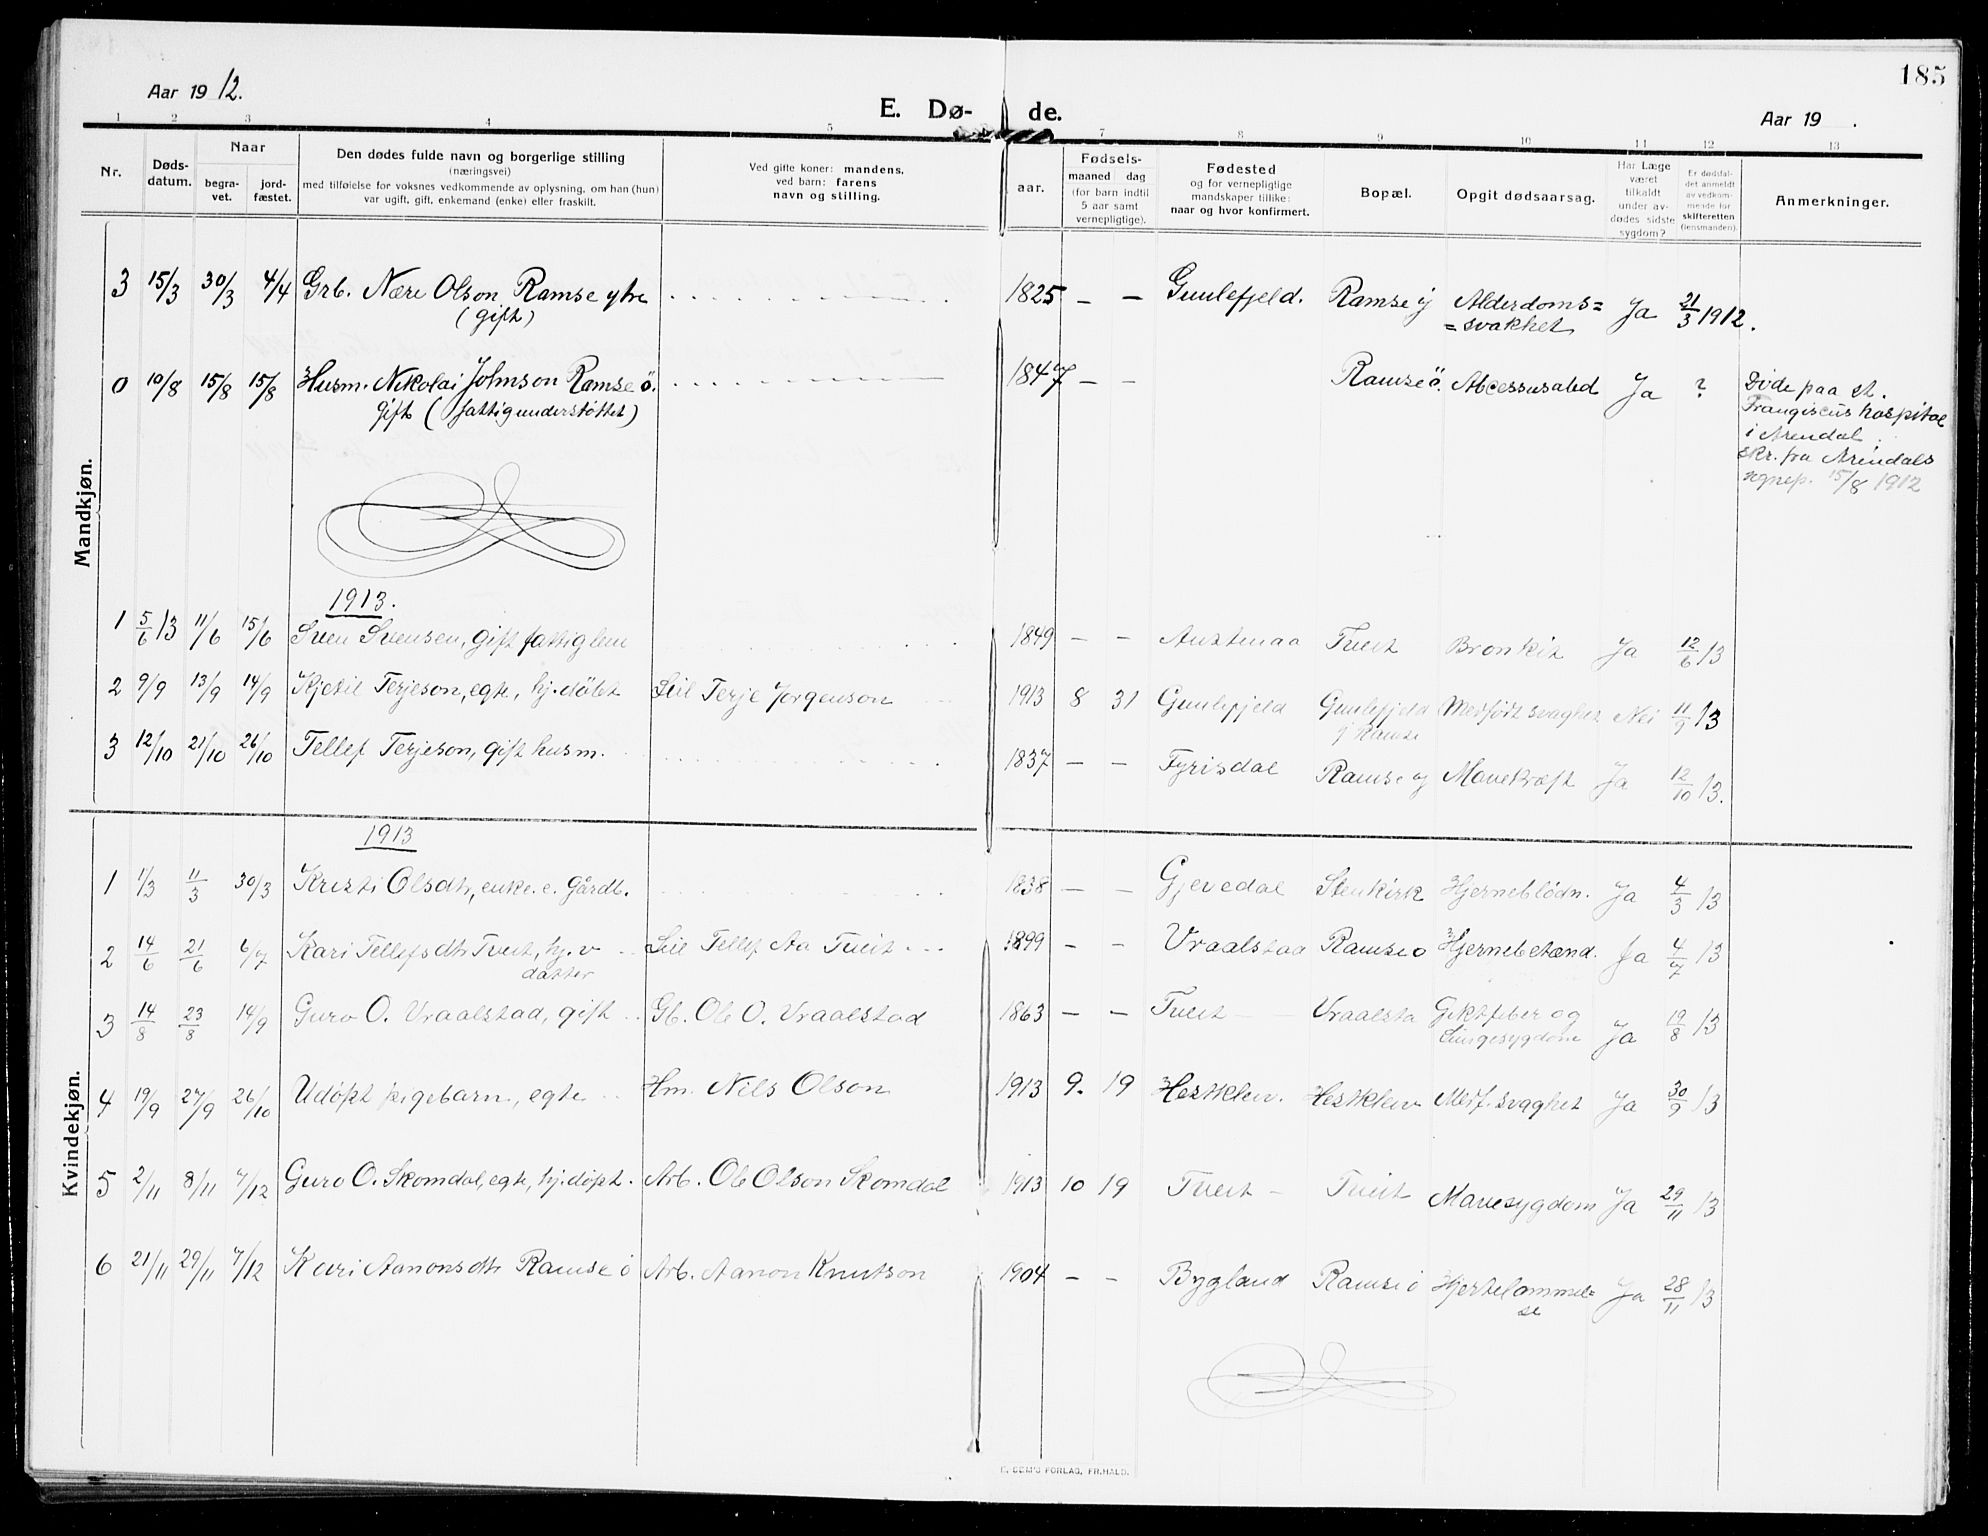 185
Aar 19 12.
E. Dø- de.
Aar 19 .
1 2 3 4 5 7 8 9 10 11 12 13
Nr.
Døds-
datum.
Naar
begra-
vet.
jord-
fæstet.
Den dødes fulde navn og borgerlige stilling
(næringsvei)
med tilføielse for voksnes vedkommende av oplysning, om han (hun)
var ugift, gift, enkemand (enke) eller fraskilt.
Ved gifte koner: mandens,
ved barn: farens
navn og stilling.
Fødsels-
aar. maaned dag
(for barn indtil
5 aar samt
vernepligtige).
Fødested
og for vernepligtige
mandskaper tillike:
naar og hvor konfirmert.
Bopæl.
Opgit dødsaarsag.
Har Læge
været
tilkaldt
under av-
dødes sidste
sygdom?
Er dødsfal-
det anmeldt
av vedkom-
mende for
skifteretten
(lensmanden).
Anmerkninger.
Mandkjøn.
3 15/3 30/3 4/4 Grb. Nære Olson, Ramse ytre 1825 – – Gunlefjeld. Ramse y Alderdoms= Ja 21/3 1912.
(gift) =svakhet
0 10/8 15/8 15/8 Husm. Nikolai Johnson Ramse ø. 1847 – – Ramse ø. Ja ? Døde paa St.
gift (fattigunderstøttet) Frangiscus hospital
i Arendal.
skr. fra Arendals
sognep. 15/8 1912
1913.
1 5/6 13 11/6 15/6 Sven Svensen, gift fattiglem 1849 – – Austenaa Tveit Bronkit Ja 12/6 13
2 9/9 13/9 14/9 Kjetil Terjeson, egte, hj. døbt Terje Jorgenson 1913 8 31 Gunlefjeld Gunlefjeld Medfødt svaghet Nei 11/9 13
y Ramse
3 12/10 21/10 26/10 Tellef Terjeson, gift husm. 1837 – – Fyrisdal Ramse y Mavekræft Ja 12/10 13.
Kvindekjøn.
1913
1 1/3 11/3 30/3 Kristi Olsdtr, enke e. Gårdb. 1838 – – Gjevedal Stenkirk Hjerneblødn. Ja 4/3 13
2 14/6 21/6 6/7 Kari Tellefsdtr Tveit, hj. v Tellef Aa Tveit 1899 – – Vraalstaa Ramse ø Hjernebetænd. Ja 4/7 13
datter
3 14/8 23/8 14/9 Guro O. Vraalstad, gift Gb. Ole O. Vraalstad 1863 – – Tveit Vraalsta Giktfeber og Ja 19/8 13
Lungesygdom
4 19/9 27/9 26/10 Udøpt pigebarn, egte Hm. Nils Olson 1913 9. 19 Hestklev. Hestklev Medf. svaghet Ja 30/9 13
5 2/11 8/11 7/12 Guro O. Skomdal, egte, hj. døpt. Arb. Ole Olson Skomdal 1913 10 19 Tveit – Tveit Mavesygdom Ja 29/11 13
6 21/11 29/11 7/12 Kari Aanonsdtr Ramse ø Arb. Aanon Knutson 1904 – – Bygland Ramse ø Hjertelammel= Ja 28/11 13
se
E. SEM'S FORLAG, FR.HALD.